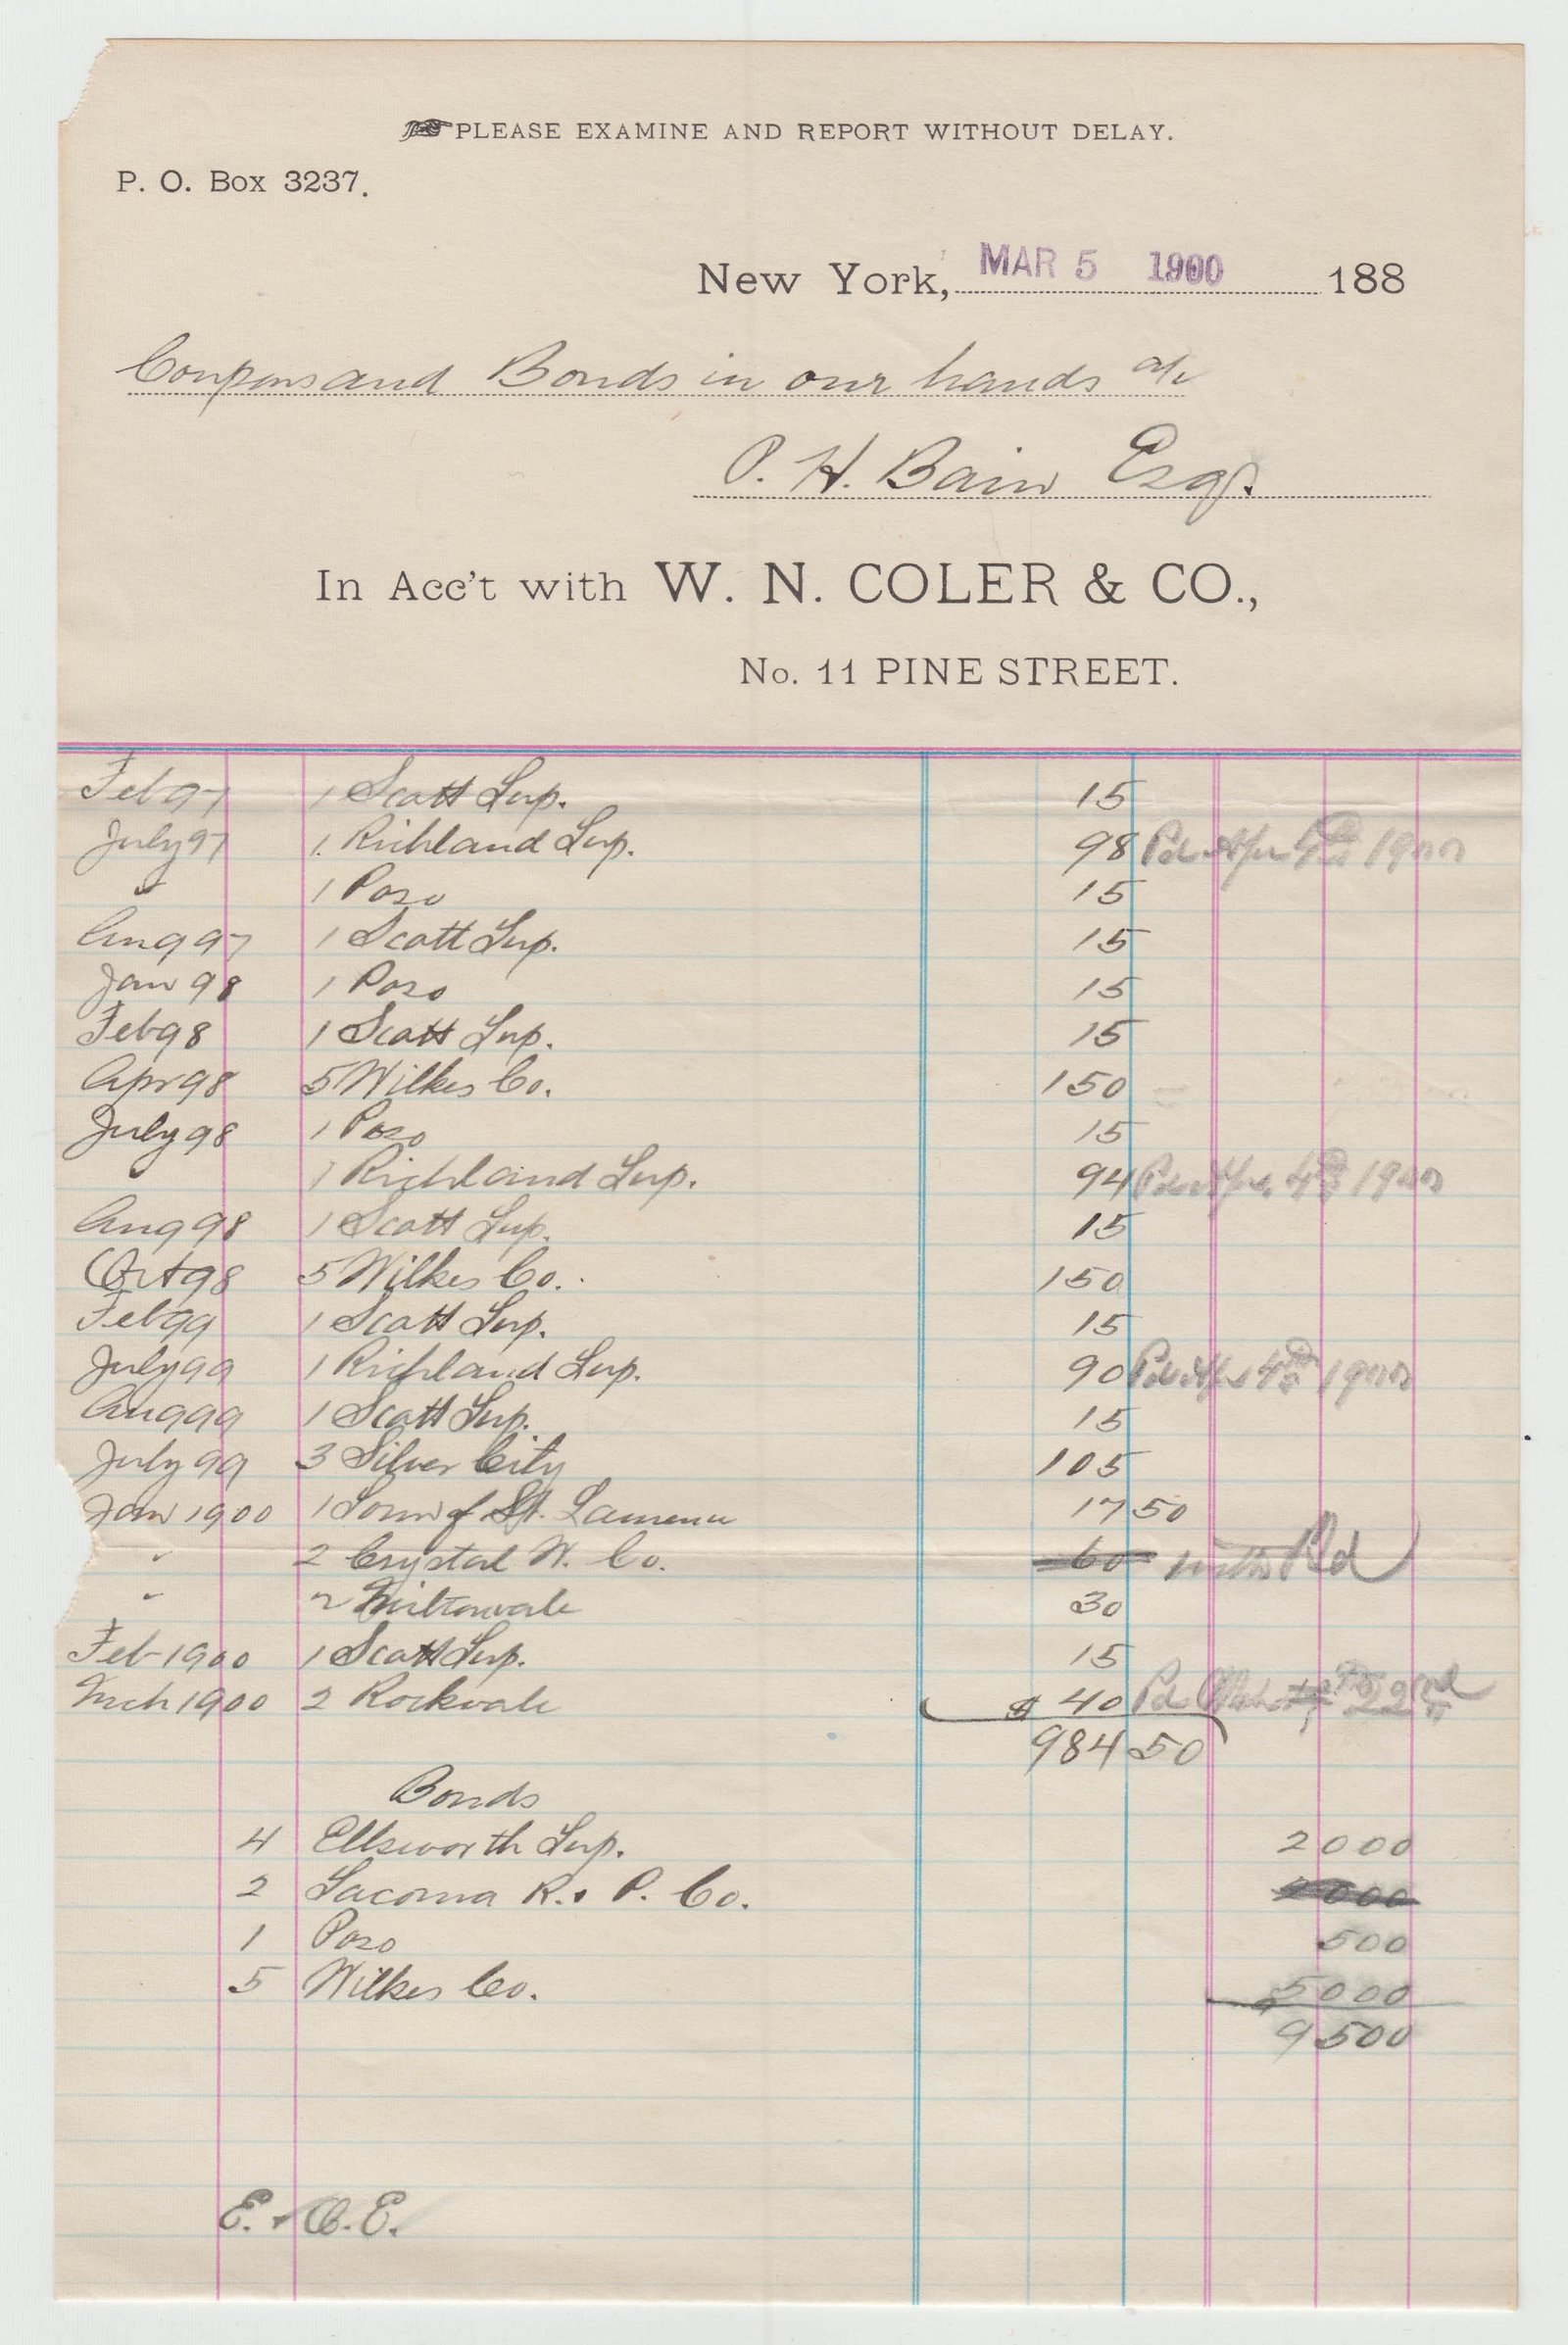 PLEASE EXAMINE AND REPORT WITHOUT DELAY.
P. O. Box 3237.
New York, MAR 5 1900 188
Coupons and Bonds in our hands a/c
P. H. Bain Esqr.
In Acc't with W. N. COLER & CO.,
No. 11 PINE STREET.
Feb 97 1 Scott Tup. 15
July 97 1. Richland Tup. 98 Pd Apr 4th 1900
" 1 Poso 15
Aug 97 1 Scott Tup. 15
Jan 98 1 Poso 15
Feb 98 1 Scott Tup. 15
Apr 98 5 Wilkes Co. 150
July 98 1 Poso 15
" 1 Richland Tup. 94 Pd Apr. 4th 1900
Aug 98 1 Scott Tup. 15
Oct 98 5 Wilkes Co. 150
Feb 99 1 Scott Tup. 15
July 99 1 Richland Tup. 90 Pd Apr 4th 1900
Aug 99 1 Scott Tup. 15
July 99 3 Silver City 105
Jan 1900 1 Town of St. 17 50
" 2 Crystal W. Co. 60 Rd
" 2 Miltonvale 30
Feb 1900 1 Scott Tup. 15
Mch 1900 2 Rockvale $ 40 Pd Mch 22nd
984 50
Bonds
4 Ellsworth Tup. 2000
2 Tacoma R. & P. Co. 2000
1 Poso 500
5 Wilkes Co. 5000
9500
E. & O. E.